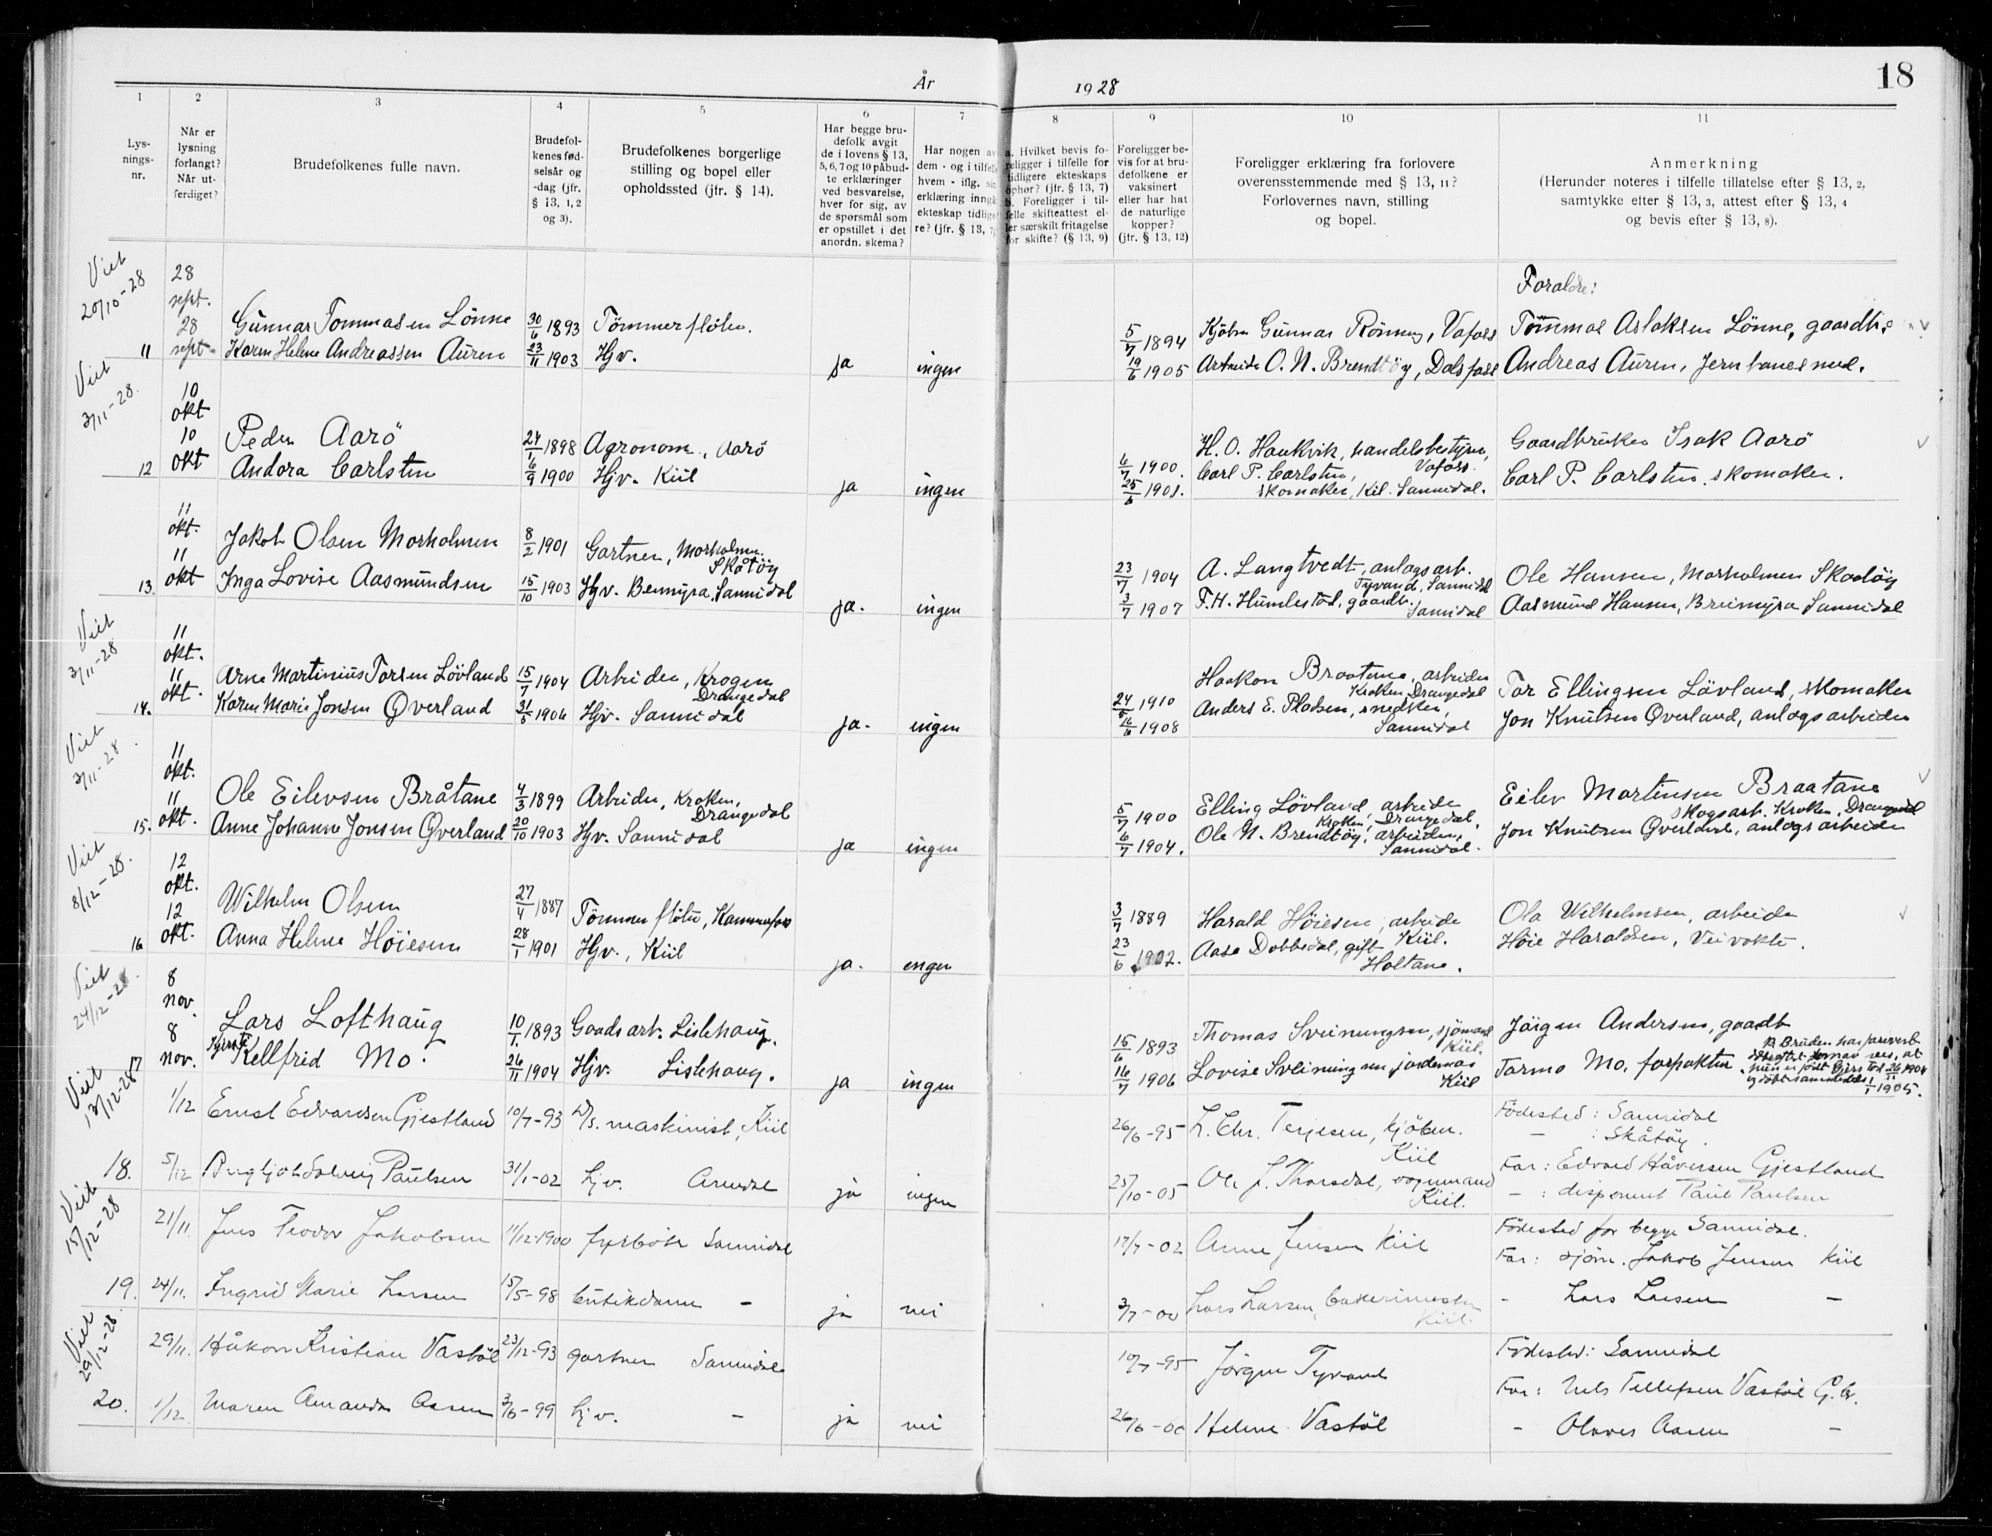 År 1928
18
1 2 3 4 5 6 7 8 9 10 11
Lys-
nings-
nr.
Når er
lysning
forlangt?
Når ut-
ferdiget?
Brudefolkenes fulle navn.
Brudefol-
kenes fød-
selsår og
-dag (jfr.
§ 13, 1, 2
og 3).
Brudefolkenes borgerlige
stilling og bopel eller
opholdssted (jfr. § 14).
Har begge bru-
defolk avgit
de i lovens § 13,
5, 6, 7 og 10 påbud-
te erklæringer
ved besvarelse,
hver for sig, av
de spørsmål som
er opstillet i det
anordn. skema?
Har nogen av
dem - og i tilfelle
hvem - iflg. sin
erklæring inngå
ekteskap tidlige-
re? (jfr. § 13, 7)
a. Hvilket bevis fo-
religger i tilfelle for
tidligere ekteskaps
ophør? (jfr. § 13, 7)
b. Foreligger i til-
felle skifteattest el-
ler særskilt fritagelse
for skifte? (§ 13, 9)
Foreligger be-
vis for at bru-
defolkene er
vaksinert
eller har hat
de naturlige
kopper?
(jfr. § 13, 12)
Foreligger erklæring fra forlovere
overensstemmende med § 13, 11?
Forlovernes navn, stilling
og bopel.
Anmerkning
(Herunder noteres i tilfelle tillatelse efter § 13, 2,
samtykke efter § 13, 3, attest efter § 13, 4
og bevis efter § 13, 8).
Viet 20/10-28
Foraldre:
28 sept. Gunnar Tommasen Lönne 30/6 1893 Tömmerfløter. 5/7 1894 Gunnar Rönning, Vafoss Tommas Aslaksen Lönne, gaardb.
11 28 sept. Karen Helene Andreassen Auren 23/11 1903 Hjv. ja ingen 19/6 1905 O. N. Brendtöy, Dalsfoss Andreas Auren, Jernbanesmed.
Viet 3/11-28.
10 okt Peder Aarö 24/1 1898 Agronom, Aarö 6/7 1900. H. O. Haukvik, handelsbestyrer, Vafoss. Gaardbruker Isak Aarö
12 10 okt Andora Carlsten 6/9 1900 Hjv. Kiil ja ingen 25/6 1901. Carl P. Carlsten, skomaker, Kil. Sannidal. Carl P. Carlsten, skomaker.
11 okt. Jakob Olsen Morholmen 8/2 1901 Gartner, Morholmen. Skåtöy 23/7 1904 A. Langtvedt, anlogsarb. Tyvand, Sannidal Ole Hansen, Morholmen Skaatöy
13. 11 okt Inga Lovise Aasmundsen 15/10 1903 Hjv. Sannidal ja. ingen 3/7 1907 T. H. Humlestad, gaardb. Sannidal Aasmund Hansen, Sannidal
Viet 3/11-28
11 okt. Arne Martinius Torsen Lövland 15/7 1904 Arbeider, Krogen Drangedal 1910 Haakon Braatane, arbeider Kroken Drangedal Tor Ellingsen Lövland, skomaker
14. 11 okt. Karen Marie Jonsen Øverland 31/5 1906 Hjv. Sannidal ja. ingen 1908 Anders E. Pladsen, snedker, Sannidal Jon Knutsen Øverland, anlogsarbeider
Viet 3/11-28.
11 okt. Ole Eilevsen Bråtane 4/3 1899 Arbeider, Kroken, Drangedal 5/7 1900 Elling Lövland, arbeider Kroken, Drangedal. Eilev Mortinsen Braatane skogsarb. Kroken, Drangedal
15. 11 okt. Anne Johanne Jonsen Øverland 20/10 1903 Hjv. Sannidal ja ingen 6/7 1904. Ole N. Brendtöy, arbeider, Sannidal. Jon Knutsen Øverland, anlogsarbeider
Viet 8/12-28.
12 okt. Wilhelm Olsen 27/4 1887 Tömmerfløter, Kammerfoss 3/7 1889 Harald Höiesen, arbeider Kiil. Ola Wilhelmsen, arbeider
16 12 okt. Anna Helene Höiesen 28/1 1901 Hjv., Kiil ja. engen 23/6 1902. Aase Dobbedal, gift Holtane. Höie Haraldsen, Veivokter.
Viet 24/12-28.
8 nov. Lars Lofthaug 10/1 1893 Gaardsarb. Lislehaug. 15/6 1893 Thomas Sveinungsen, sjömand Kiil. Jörgen Andersen, gaardb
17 8 nov. Kellfrid Mo. 26/11 1904 Hjv. Lislehaug. ja ingen 16/7 1906 Lovise Sveinungsen jordemor Kiil Tarmo Mo, forpakter.
Viet 13/12-28
1/12 Ernst Edvardsen Gjestland 10/7-93 D/s. maskinist, Kiil 26/6-95 L. Chr. Terjesen, kjöbm. Kiil Födested: Sannidal
— : Skåtöy.
18. 5/12 Bergljot Solveig Paulsen 31/1-02 hjv. Arendal ja ingen 25/10-05 Ole J. Thorsdal, vognmand Kiil. Far: Edvard Håversen Gjestland
— : disponent Paul Paulsen
Viet 15/12-28
21/11. Jens Teodor Jakobsen 11/12-1900 fyrböter Sannidal 17/7-02 Anne Jensen Kiil Födested for begge Sannidal.
Far: sjöm. Jakob Jensen Kiil
19. 24/11. Ingrid Marie Larsen 15/5-98 butikdame — ja nei 3/7-00 Lars Larsen, bakermester Kiil. — Lars Larsen —
Viet 29/12-28.
29/11. Håkon Kristian Vastöl 23/12-93 gartner Sannidal 10/7-95 Jörgen Tyvand Födested: Sannidal
Far: Nels Tellefsen Vastöl G.br.
20. 1/12. Maren Amanda Aasen 3/6-99 hjv. — ja nei 26/6-00 Helene Vastöl — Olaves Aasen —